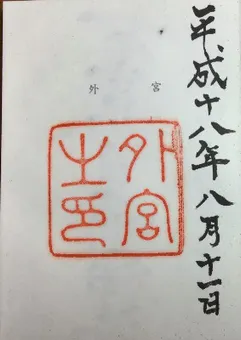 平成十八年八月十一日
外宮
外宮
之印